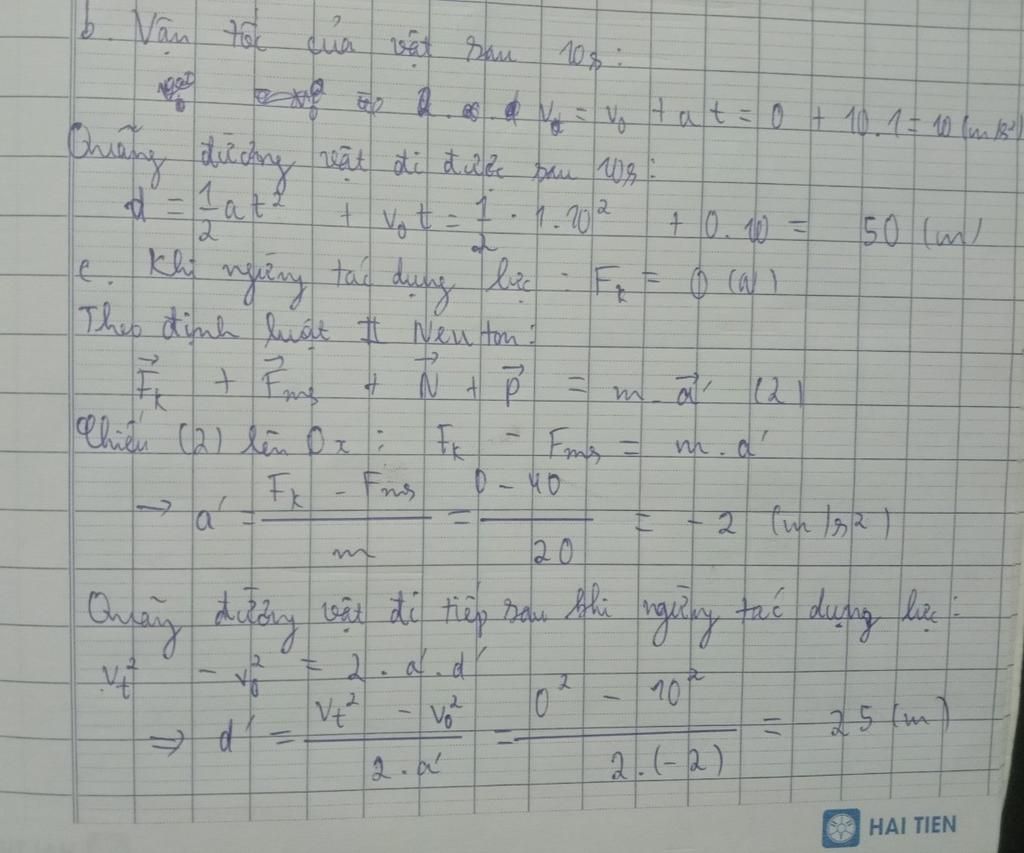 b. Vận tốc của vật sau 10s:
v_t = v_0 + a t = 0 + 10.1 = 10 (m/s²)
Quãng đường vật đi được sau 10s:
d = 1/2 a t² + v_0 t = 1/2 . 1.10² + 0.10 = 50 (m)
c. Khi ngừng tác dụng lực: F_k = 0 (N)
Theo định luật II Neuton:
F_k + F_ms + N + P = m . a' (2)
Chiếu (2) lên Ox: F_k - F_ms = m . a'
→ a' = (F_k - F_ms) / m = (0 - 40) / 20 = -2 (m/s²)
Quãng đường vật đi tiếp sau khi ngừng tác dụng lực:
v_t² - v_0² = 2 . a' . d'
⇒ d' = (v_t² - v_0²) / (2 . a') = (0² - 10²) / (2 . (-2)) = 25 (m)
HAI TIEN